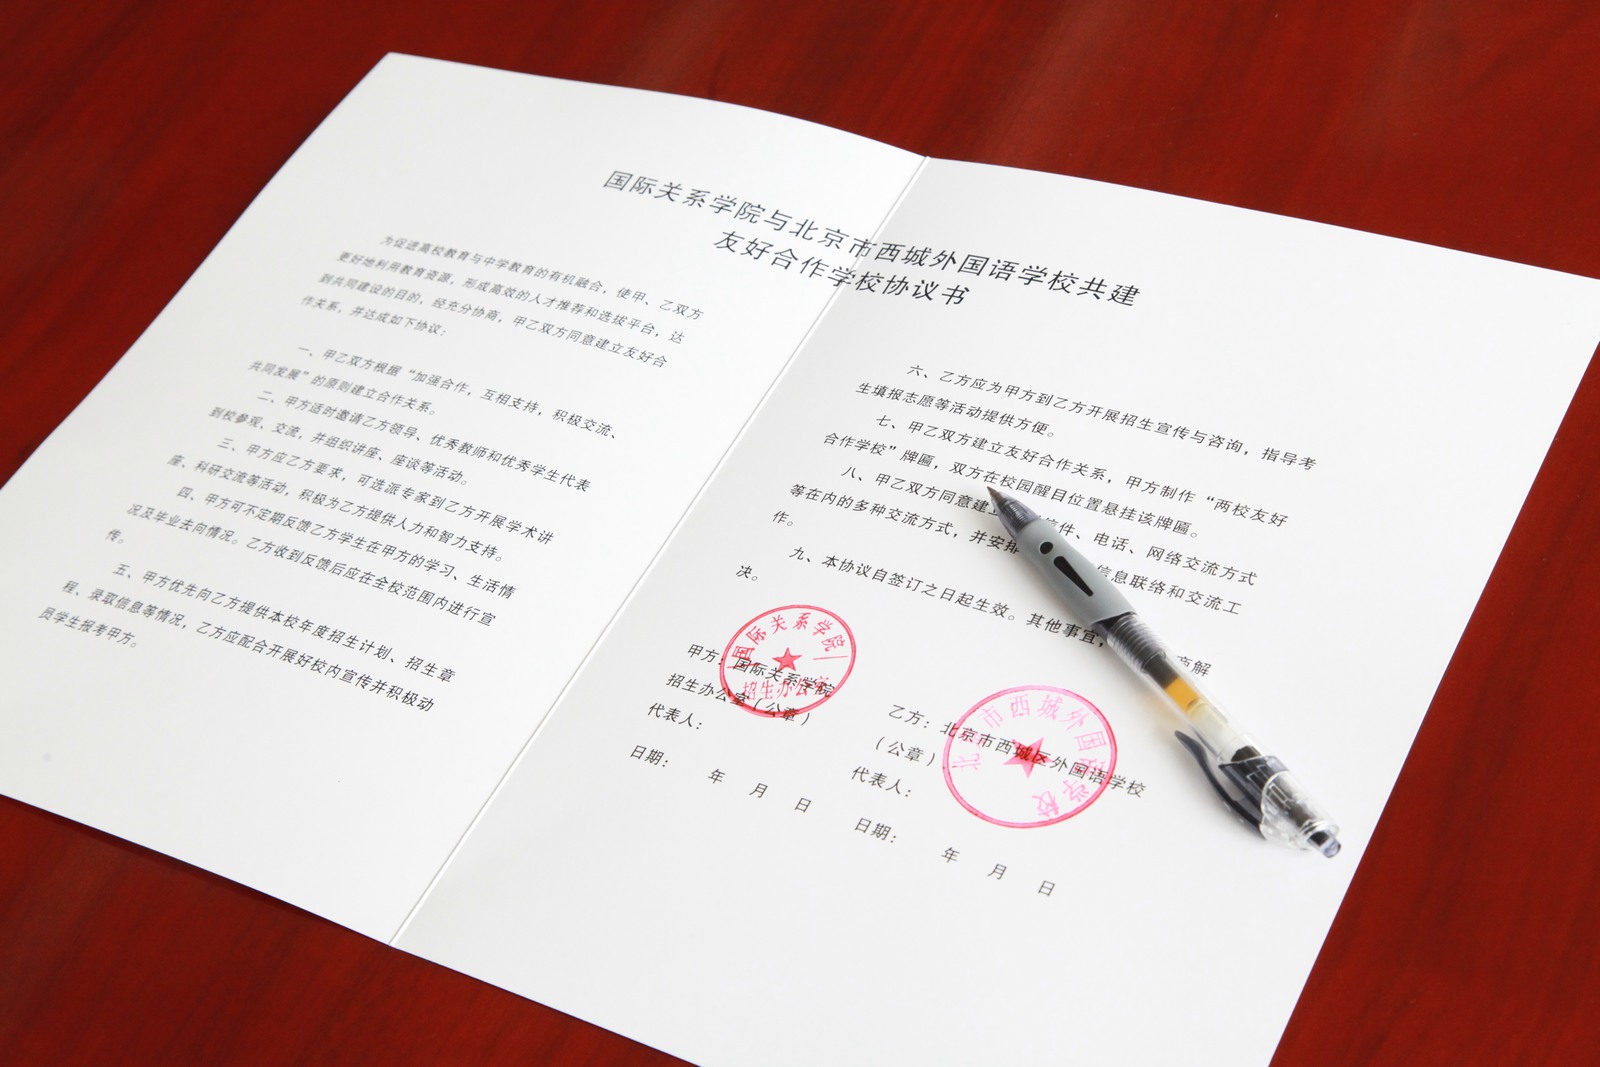 国际关系学院与北京市西城外国语学校共建
友好合作学校协议书
为促进高校教育与中学教育的有机融合，使甲、乙双方
更好地利用教育资源，形成高效的人才推荐和选拔平台，达
到共同建设的目的，经充分协商，甲乙双方同意建立友好合
作关系，并达成如下协议：
一、甲乙双方根据“加强合作，互相支持，积极交流、
共同发展”的原则建立合作关系。
二、甲方适时邀请乙方领导、优秀教师和优秀学生代表
到校参观、交流，并组织讲座、座谈等活动。
三、甲方应乙方要求，可选派专家到乙方开展学术讲
座、科研交流等活动，积极为乙方提供人力和智力支持。
四、甲方可不定期反馈乙方学生在甲方的学习、生活情
况及毕业去向情况。乙方收到反馈后应在全校范围内进行宣
传。
五、甲方优先向乙方提供本校年度招生计划、招生章
程、录取信息等情况，乙方应配合开展好校内宣传并积极动
员学生报考甲方。
六、乙方应为甲方到乙方开展招生宣传与咨询，指导考
生填报志愿等活动提供方便。
七、甲乙双方建立友好合作关系，甲方制作“两校友好
合作学校”牌匾，双方在校园醒目位置悬挂该牌匾。
八、甲乙双方同意建 件、电话、网络交流方式
等在内的多种交流方式，并安排 信息联络和交流工
作。
九、本协议自签订之日起生效。其他事宜， 商解
决。
甲方：国际关系学院
招生办公室（公章）
代表人：
日期： 年 月 日
乙方：北京市西城区外国语学校
（公章）
代表人：
日期： 年 月 日
国际关系学院
招生办公室
北京市西城外国语学校